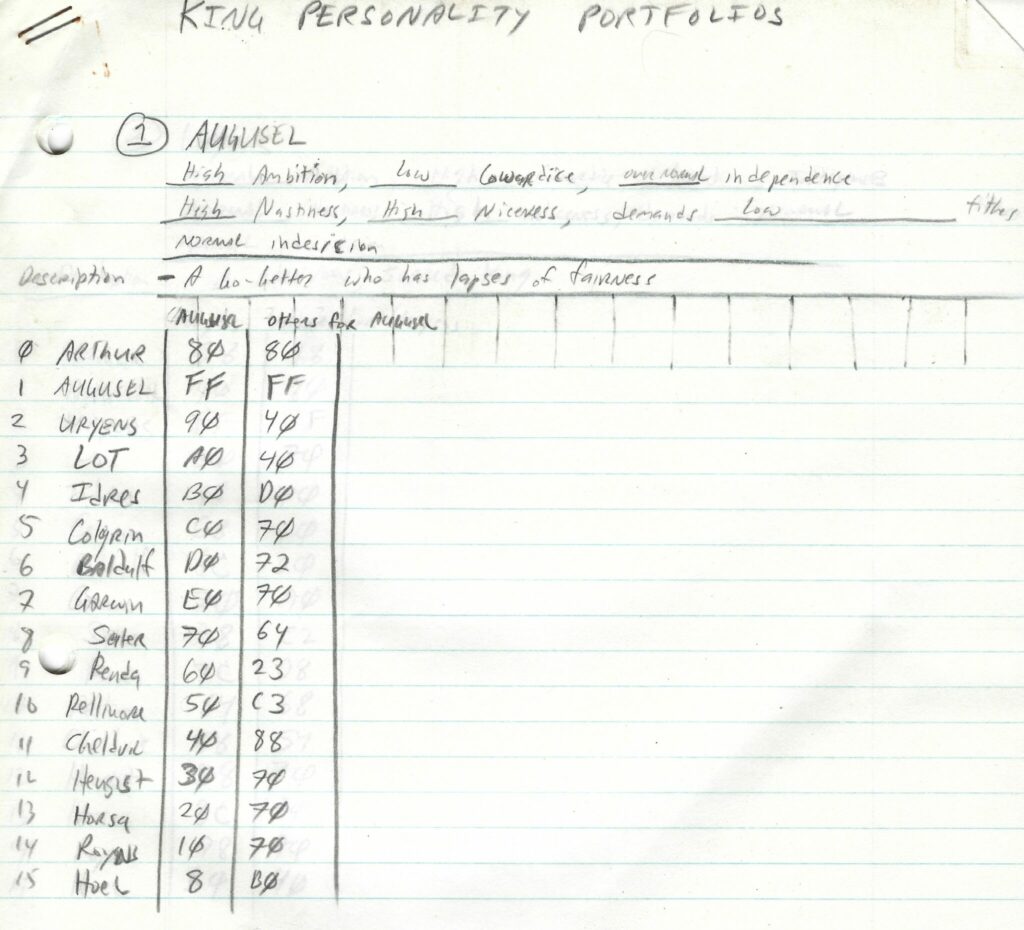 KING PERSONALITY PORTFOLIOS
1 AUGUSEL
High Ambition, Low Cowardice, over normal independence
High Nastiness, High Niceness, demands Low tithes
NORMAL indesision
Description - A Go-Getter who has lapses of fairness
AUGUSEL others for AUGUSEL
0 ARTHUR 80 80
1 AUGUSEL FF FF
2 URYENS 90 40
3 LOT A0 40
4 Idres B0 D0
5 Colgrin C0 70
6 Baldulf D0 72
7 Garwin E0 70
8 Sater 70 64
9 Penda 60 23
10 Pellinore 50 C3
11 Cheldric 40 88
12 Hengist 30 70
13 Horsa 20 70
14 Royns 10 70
15 Hoel 8 B0